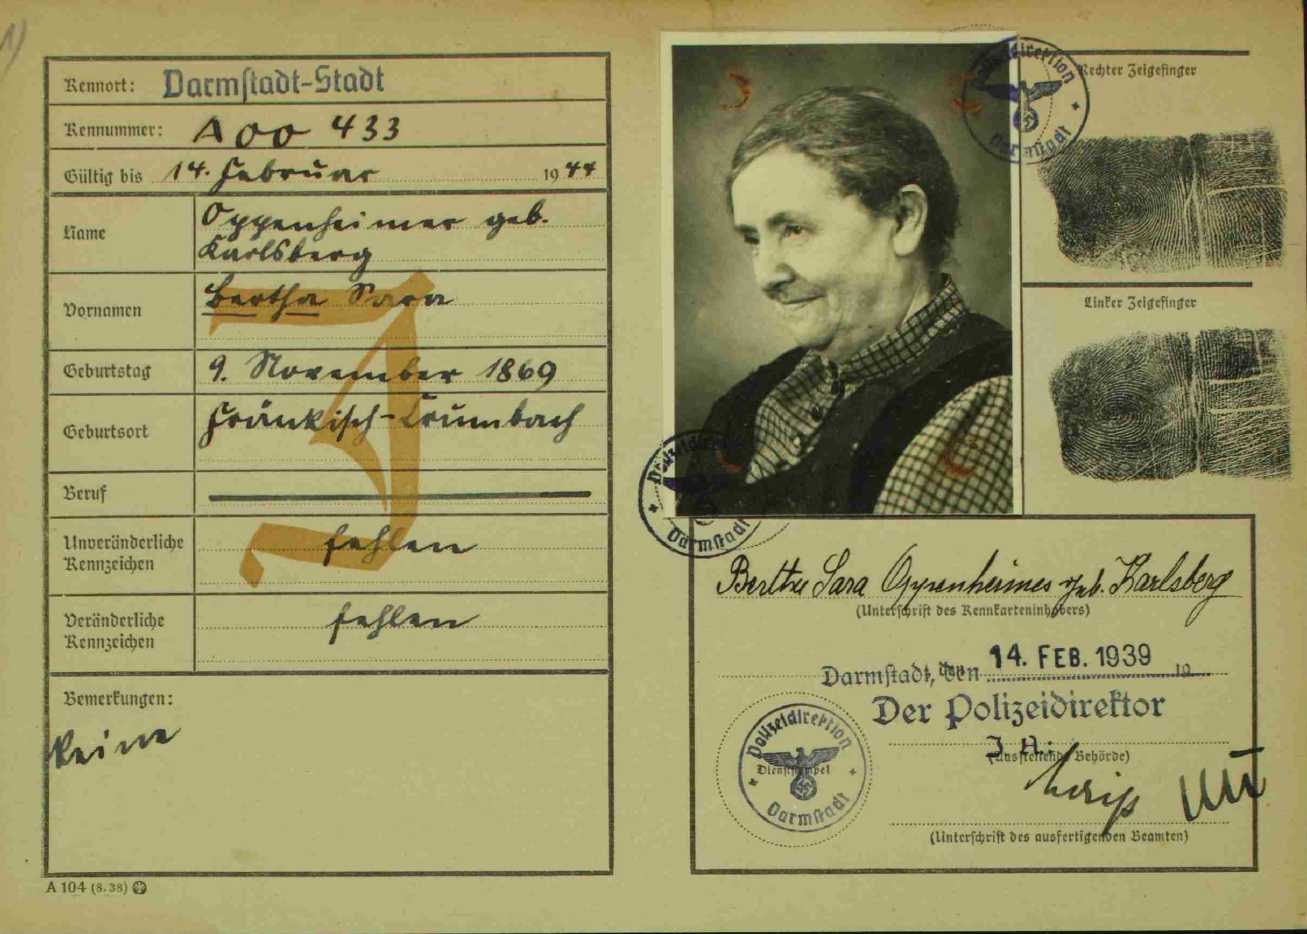 1)
Kennort: Darmstadt-Stadt
Kennummer: A00 433
Gültig bis 14. Februar 1944
Name Oppenheimer geb.
Karlsberg
Vornamen Bertha Sara
Geburtstag 9. November 1869
Geburtsort Fränkisch-Crumbach
Beruf
Unveränderliche
Kennzeichen fehlen
Veränderliche
Kennzeichen fehlen
J
Bemerkungen:
keine
A 104 (8. 38)
Polizeidirektion
Darmstadt
Rechter Zeigefinger
Linker Zeigefinger
Polizeidirektion
Darmstadt
Bertha Sara Oppenheimer geb. Karlsberg
(Unterschrift des Kennkarteninhabers)
Darmstadt, den 14. FEB. 1939 19
Der Polizeidirektor
J. A.:
(Ausstellende Behörde)
Polizeidirektion
Dienststempel
Darmstadt
(Unterschrift des ausfertigenden Beamten)